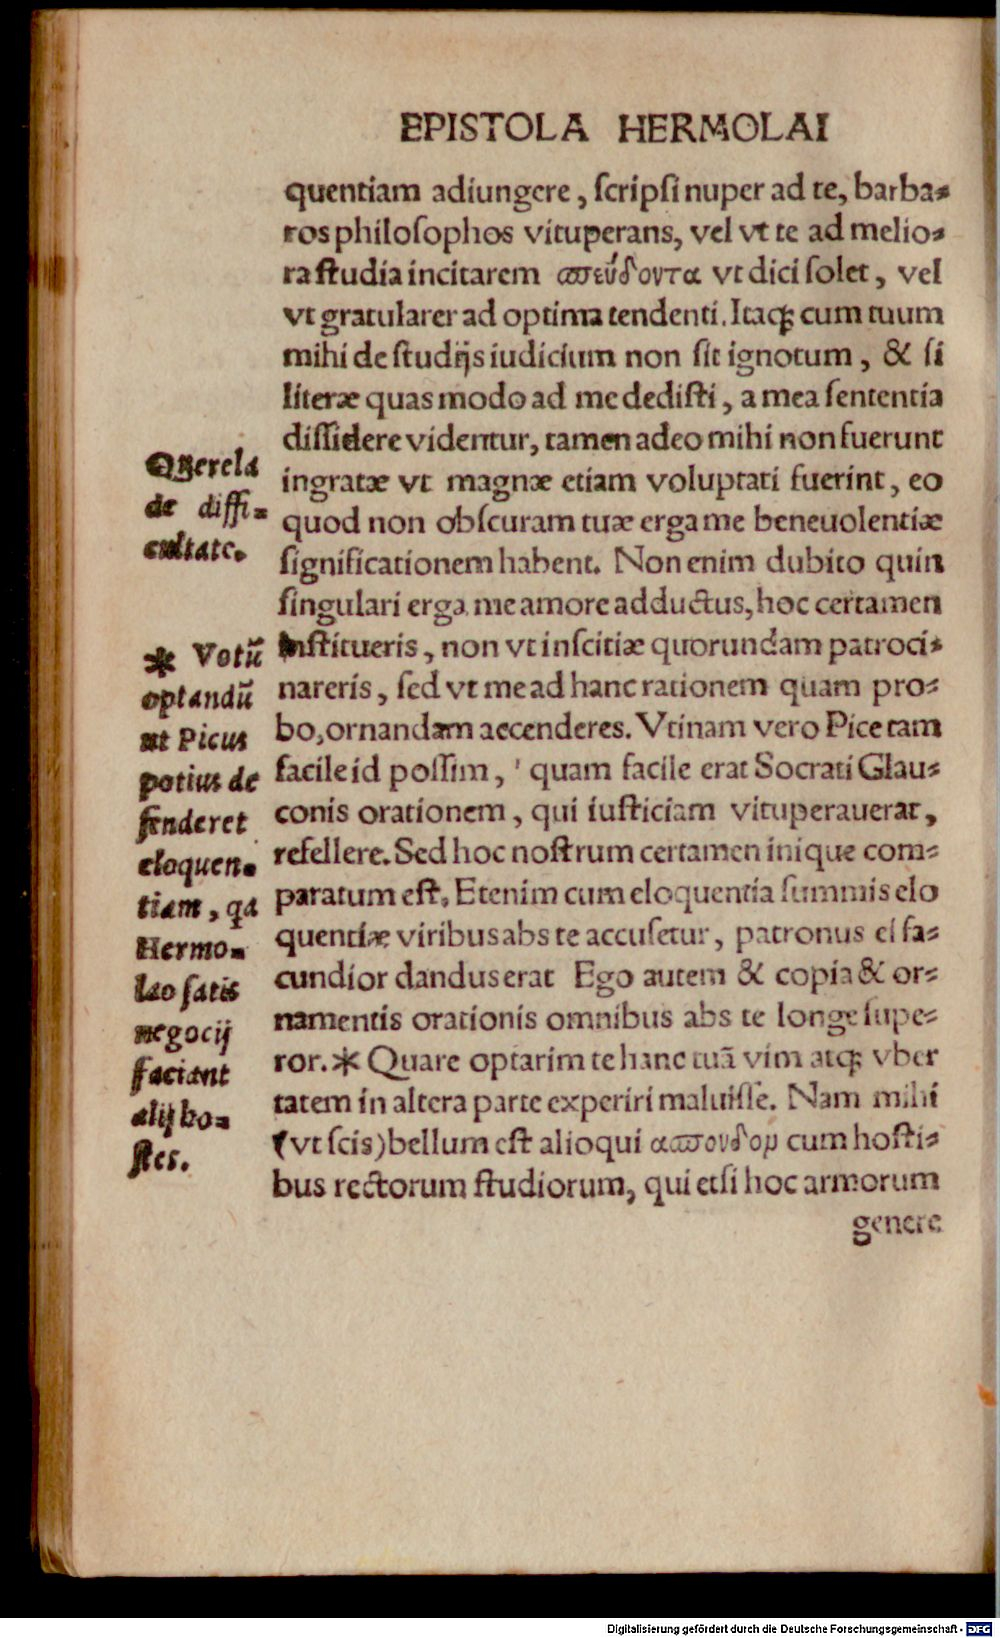 EPISTOLA HERMOLAI
quentiam adiungere, ſcripſi nuper ad te, barba⸗
ros philoſophos vituperans, vel vt te ad melio⸗
ra ſtudia incitarem ασπεύδοντα vt dici ſolet, vel
vt gratularer ad optima tendenti. Itaqꝫ cum tuum
mihi de ſtudijs iudicium non ſit ignotum, & ſi
literæ quas modo ad me dediſti, a mea ſententia
diſſidere videntur, tamen adeo mihi non fuerunt
ingratæ vt magnæ etiam voluptati fuerint, eo
quod non obſcuram tuæ erga me beneuolentiæ
ſignificationem habent. Non enim dubito quin
ſingulari erga me amore adductus, hoc certamen
inſtitueris, non vt inſcitiæ quorundam patroci⸗
nareris, ſed vt me ad hanc rationem quam pro⸗
bo, ornandam accenderes. Vtinam vero Pice tam
facile id poſſim, ' quam facile erat Socrati Glau⸗
conis orationem, qui iuſticiam vituperauerat,
refellere. Sed hoc noſtrum certamen inique com⸗
paratum eſt. Etenim cum eloquentia ſummis elo
quentiæ viribus abs te accuſetur, patronus ei fa⸗
cundior dandus erat Ego autem & copia & or⸗
namentis orationis omnibus abs te longe ſupe⸗
ror. * Quare optarim te hanc tuā vim atqꝫ vber
tatem in altera parte experiri maluiſſe. Nam mihi
(vt ſcis) bellum eſt alioqui ασπονδον cum hoſti⸗
bus rectorum ſtudiorum, qui etſi hoc armorum
genere
Querela
de diffi⸗
cultate.
* Votū
optandū
ut Picus
potius de
fenderet
eloquen⸗
tiam, qa
Hermo⸗
lao ſatis
negocij
faciant
alij ho⸗
ſtes.
Digitalisierung gefördert durch die Deutsche Forschungsgemeinschaft - DFG